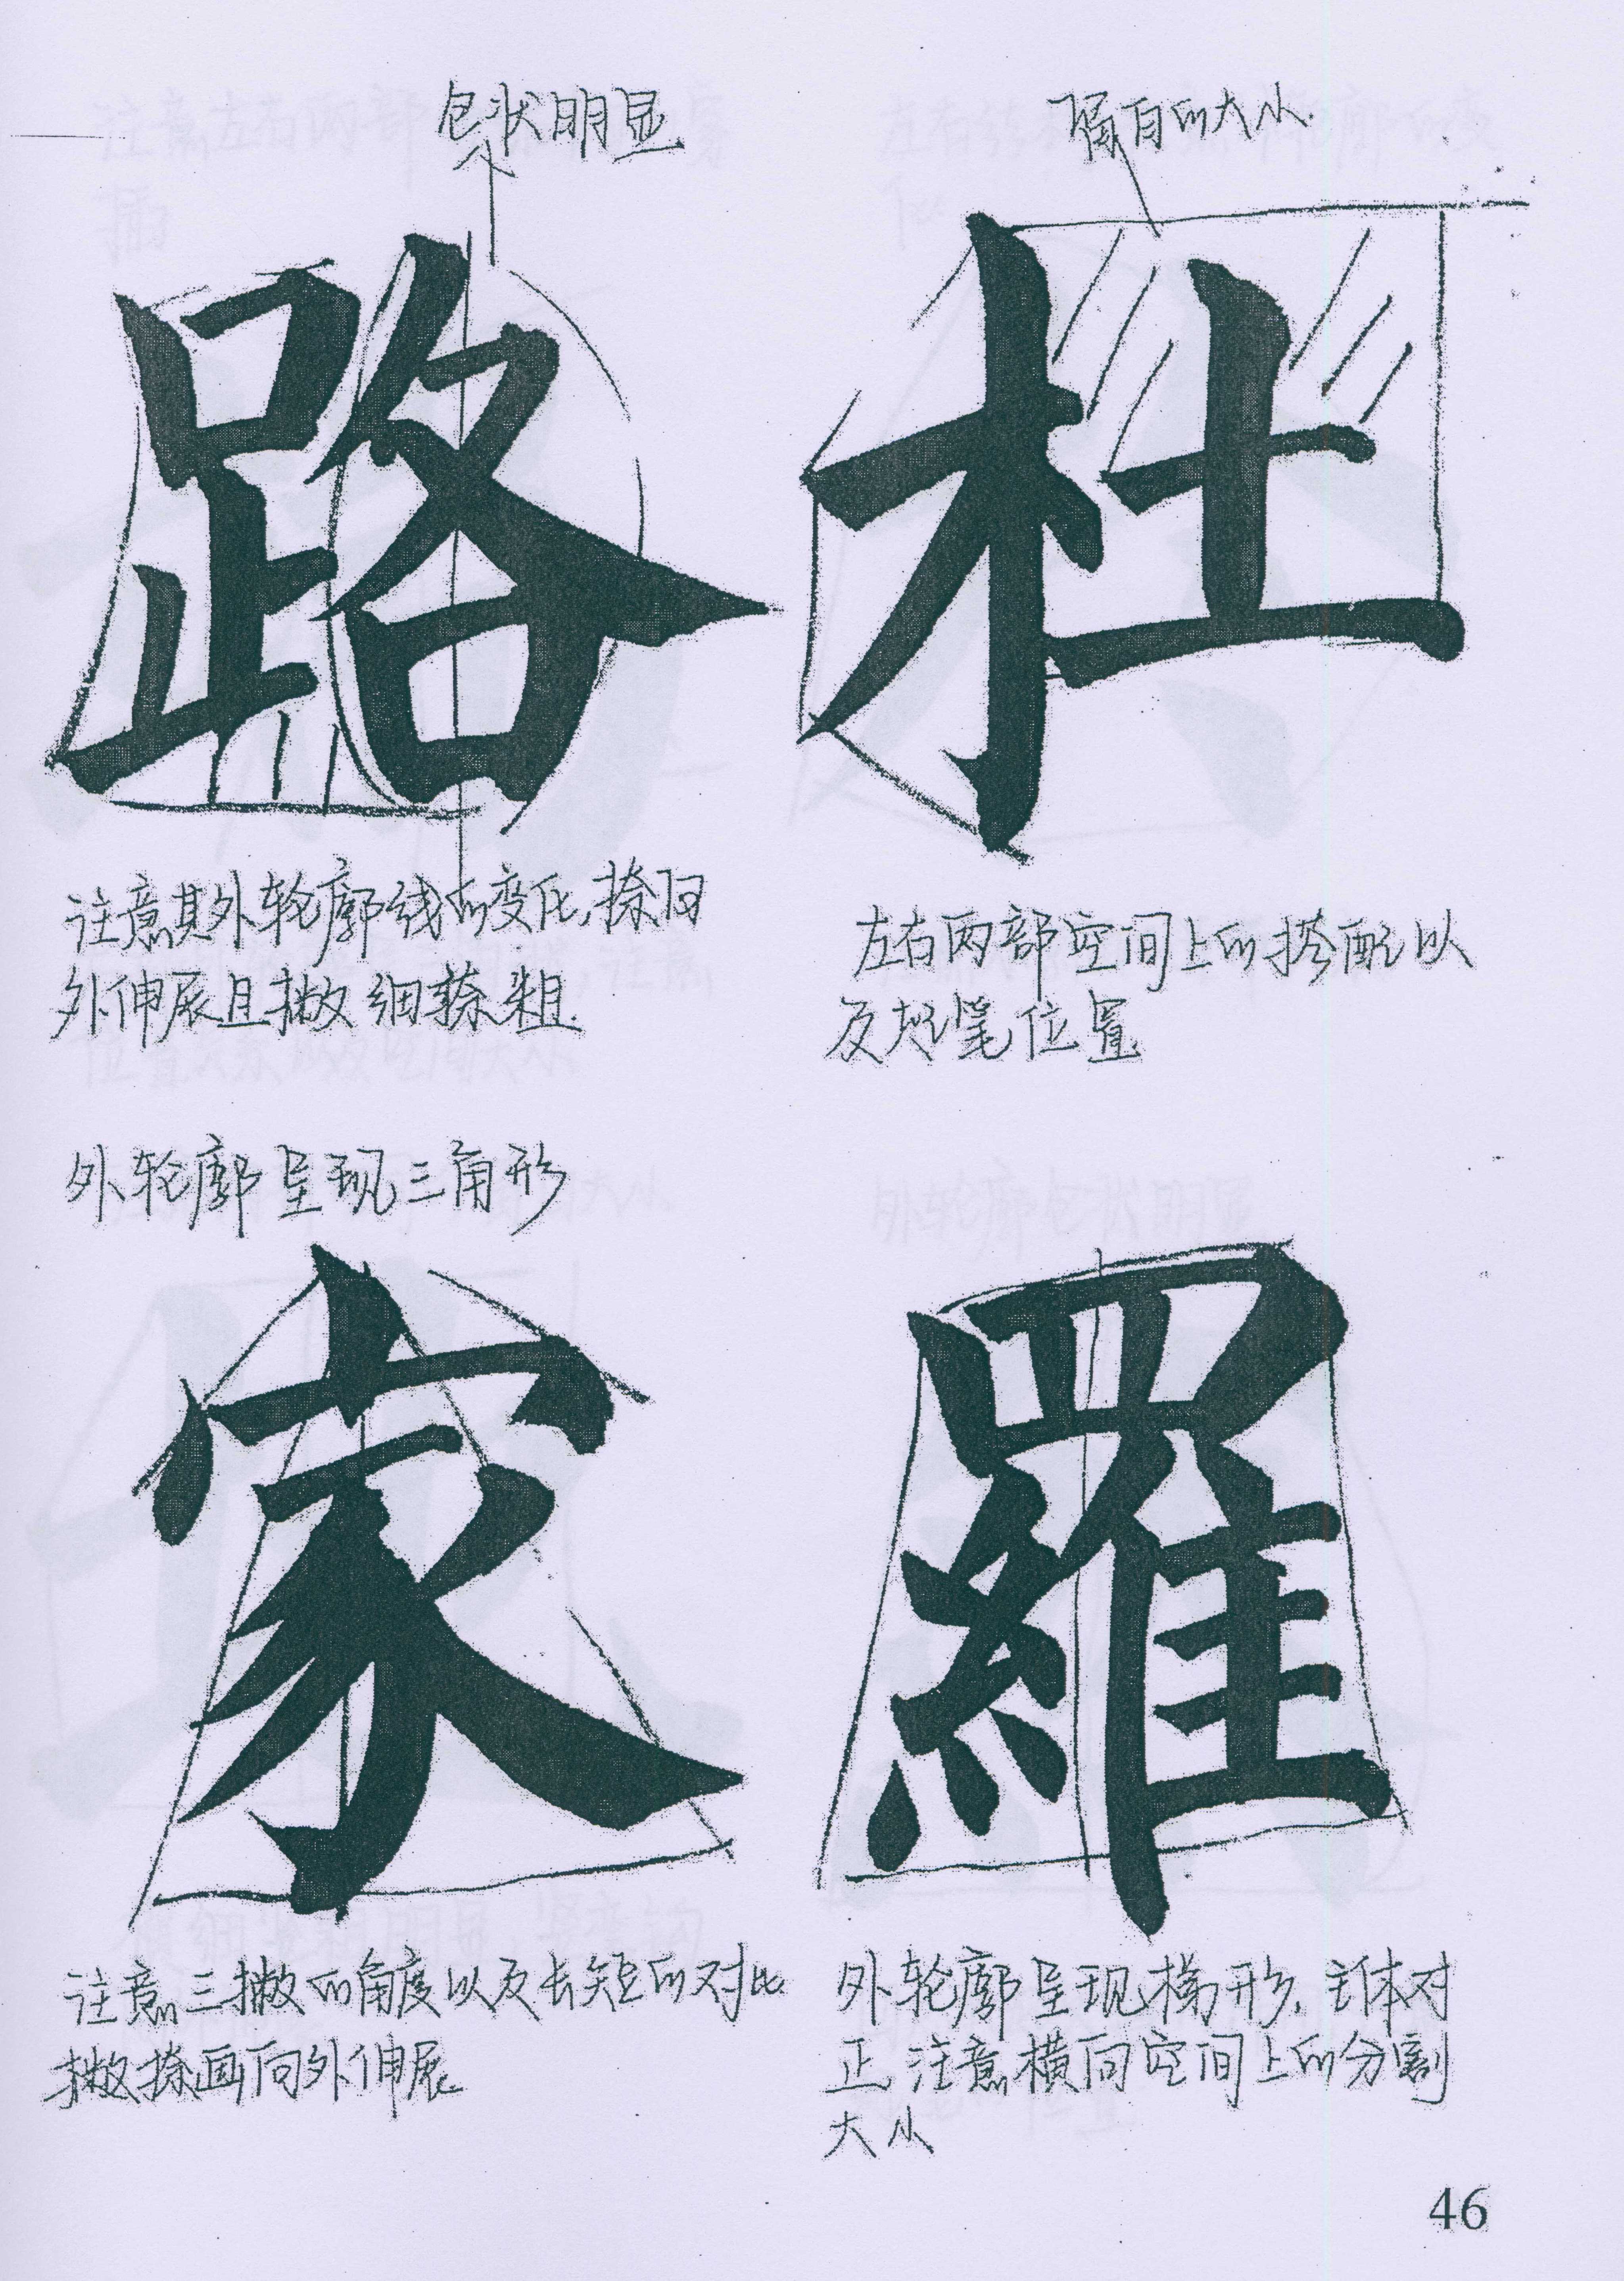 包状明显
留白的大小.
路
杜
注意其外轮廓线的变化,捺向
外伸展且撇细捺粗.
左右两部空间上的搭配以
及起笔位置
外轮廓呈现三角形
家
羅
注意三撇的角度以及长短的对比
撇捺画向外伸展
外轮廓呈现梯形,主体对
正,注意横向空间上的分割
大小
46